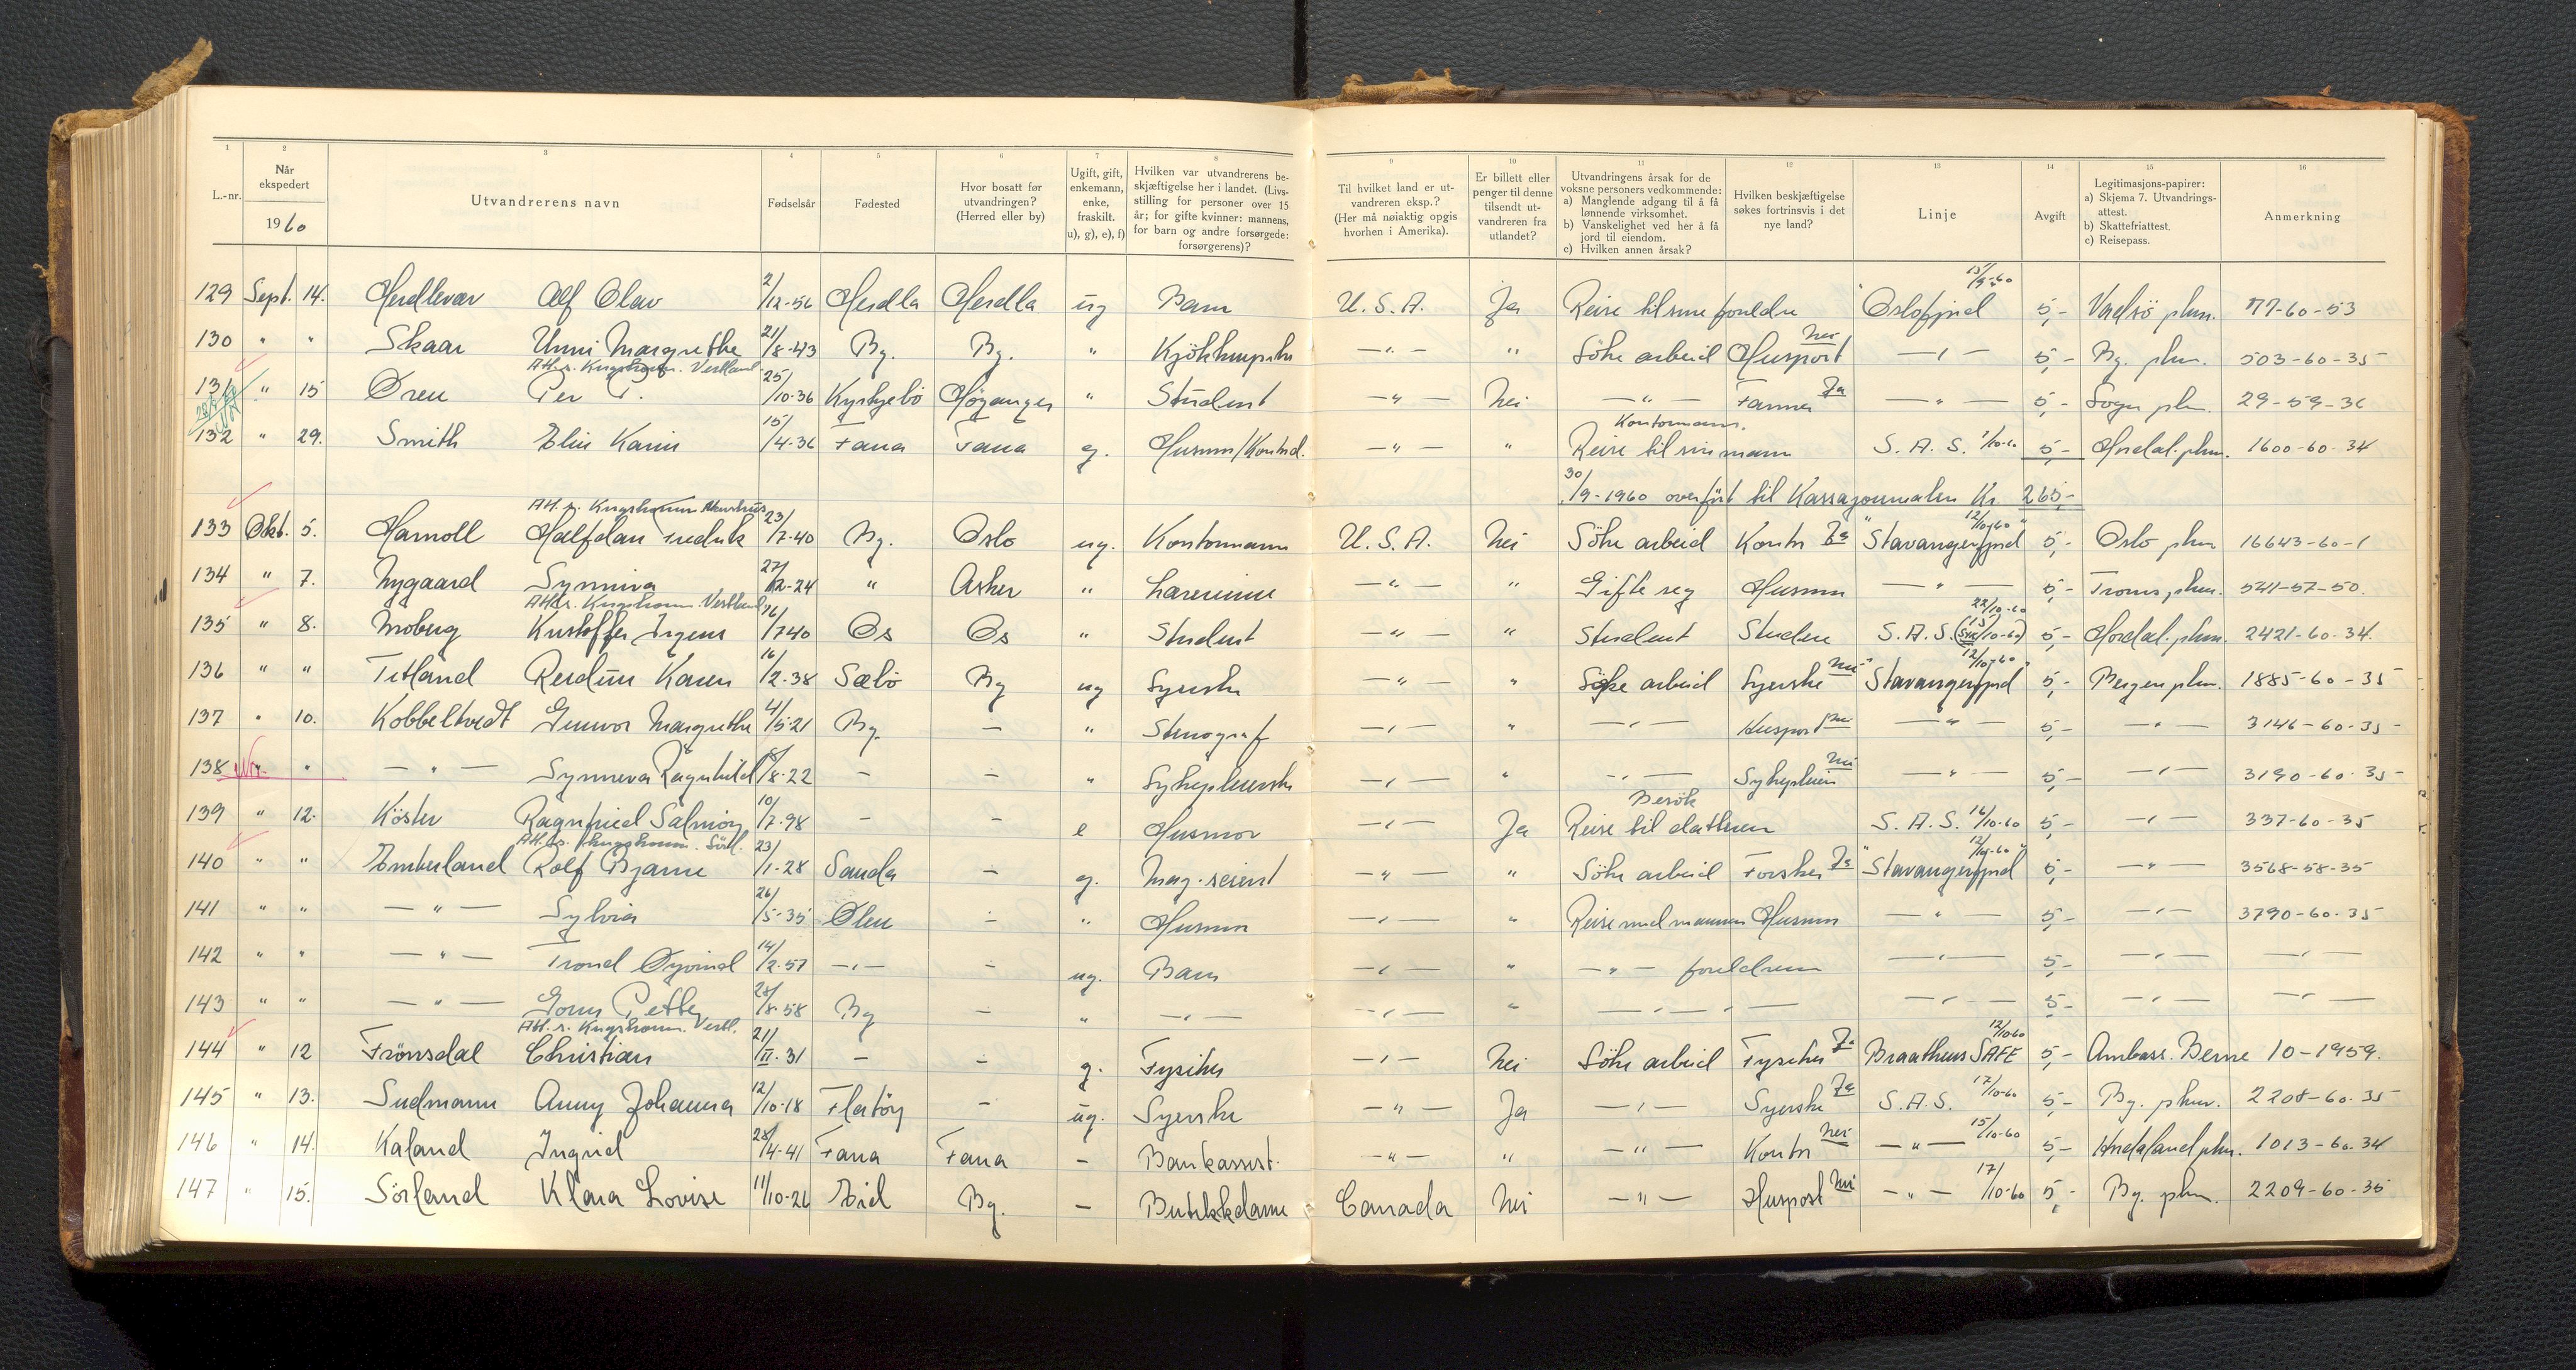 1 2 3 4 5 6 7 8 9 10 11 12 13 14 15 16
L.-nr.
Når ekspedert
1960
Utvandrerens navn
Fødselsår
Fødested
Hvor bosatt før utvandringen? (Herred eller by)
Ugift, gift, enkemann, enke, fraskilt. u), g), e), f)
Hvilken var utvandrerens beskjæftigelse her i landet. (Livsstilling for personer over 15 år; for gifte kvinner: mannens, for barn og andre forsørgede: forsørgerens)?
Til hvilket land er utvandreren eksp.? (Her må nøiaktig opgis hvorhen i Amerika).
Er billett eller penger til denne tilsendt utvandreren fra utlandet?
Utvandringens årsak for de voksne personers vedkommende: a) Manglende adgang til å få lønnende virksomhet. b) Vanskelighet ved her å få jord til eiendom. c) Hvilken annen årsak?
Hvilken beskjæftigelse søkes fortrinsvis i det nye land?
Linje
Avgift
Legitimasjons-papirer: a) Skjema 7. Utvandringsattest. b) Skattefriattest. c) Reisepass.
Anmerkning
129 Sept. 14. Herdlevær Alf Olav 2/12-56 Herdla Herdla ug Barn U.S.A. Ja Reise til sine foreldre "Oslofjord 15/9-60 5,- Vadsö pkm. 77-60-53
130 " " Skaar Unni Margrethe 21/8-43 Bg. Bg. " Kjökkenpike — " — " Söke arbeid Huspost nei — " — 5,- Bg. pkm. 503-60-35
131 " 15 Øren Per P. 25/10-36 Kyrkjebö Höyanger " Student — " — Nei — " — Farmer Ja — " — 5,- Sogn pkm. 29-59-36
132 " 29. Smith Elin Karin 15/4-36 Fana Fana g. Husmor/Kontord. — " — " Reise til sin mann Kontormann. S.A.S. 1/10-60 5,- Hordal. pkm. 1600-60-34
30/9-1960 overført til Kassajournalen Kr. 265,-
133 Okt. 5. Harnoll Halfdan Fredrik 23/7-40 Bg. Oslo ug. Kontormann U.S.A. Nei Söke arbeid Kontor Ja "Stavangerfjord" 12/10-60 5,- Oslo pkm 16643-60-1
134 " 7. Nygaard Synniva 27/12-24 " Asker " Lærerinne — " — " Gifte seg Husmor — " — 5,- Troms pkm. 541-57-50.
135 " 8. Moberg Kristoffer Irgens 16/7 40 Os Os " Student — " — " Student Studere S.A.S. 22/10-60 5,- Hordal. pkm. 2421-60-34.
136 " " Tetland Reidun Karen 16/2-38 Sæbö Bg ug Syerske — " — " Söke arbeid Syerske nei "Stavangerfjord" 12/10-60 5,- Bergen pkm. 1885-60-35
137 " 10. Kobbeltvedt Gunvor Margrethe 4/5-21 Bg. — " Stenograf — " — " — " — Huspost nei — " — 5,- — " — 3146-60-35
138 " " — " — Synneva Ragnhild /8-22 — — " Sykepleierske — " — " — " — Sykepleien nei — " — 5,- — " — 3190-60-35
139 " 12. Köster Ragnfried Salmöy 10/7-98 — — e Husmor — " — Ja Besök Reise til datteren S.A.S. 16/10-60 5,- — " — 337-60-35
140 " " Emberland Rolf Bjarne 23/1-28 Sauda — g. Mag. scient — " — " Söke arbeid Forsker Ja "Stavangerfjord" 12/10-60 5,- — " — 3568-58-35
141 " " — " — Sylvia 26/5-35 Ølen — " Husmor — " — " Reise med mannen Husmor — " — 5,- — " — 3790-60-35
142 " " — " — Trond Øyvind 14/2-57 — " — — ug. Barn — " — " — " — foreldrene — " — 5,- — " — — " —
143 " " — " — Petter 28/8-58 Bg — " — " — — " — " — " — " — — " — 5,- — " — — " —
144 " 12 Frönsdal Christian 21/II-31 — — g. Fysiker — " — Nei Söke arbeid Fysiker Ja Braathens SAFE 12/10-60 5,- Ambass. Berne 10-1959.
145 " 13. Sudmann Anny Johanna 12/10-18 Flatöy — ug. Syerske — " — Ja — " — Syerske Ja S.A.S. 17/10-60 5,- Bg. pkm. 2208-60-35
146 " 14. Kaland Ingrid 28/4-41 Fana Fana — Bankassist. — " — " — " — Kontor nei — " — 15/10-60 5,- Hordaland pkm. 1013-60-34
147 " 15. Sörland Klara Lovise 11/10-26 Eid Bg. — Butikkdame Canada Nei — " — Huspost nei — " — 17/10-60 5,- Bg. pkm. 2209-60-35